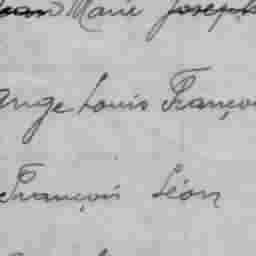 Jean Marie Joseph
Ange Louis Franço
François Léon